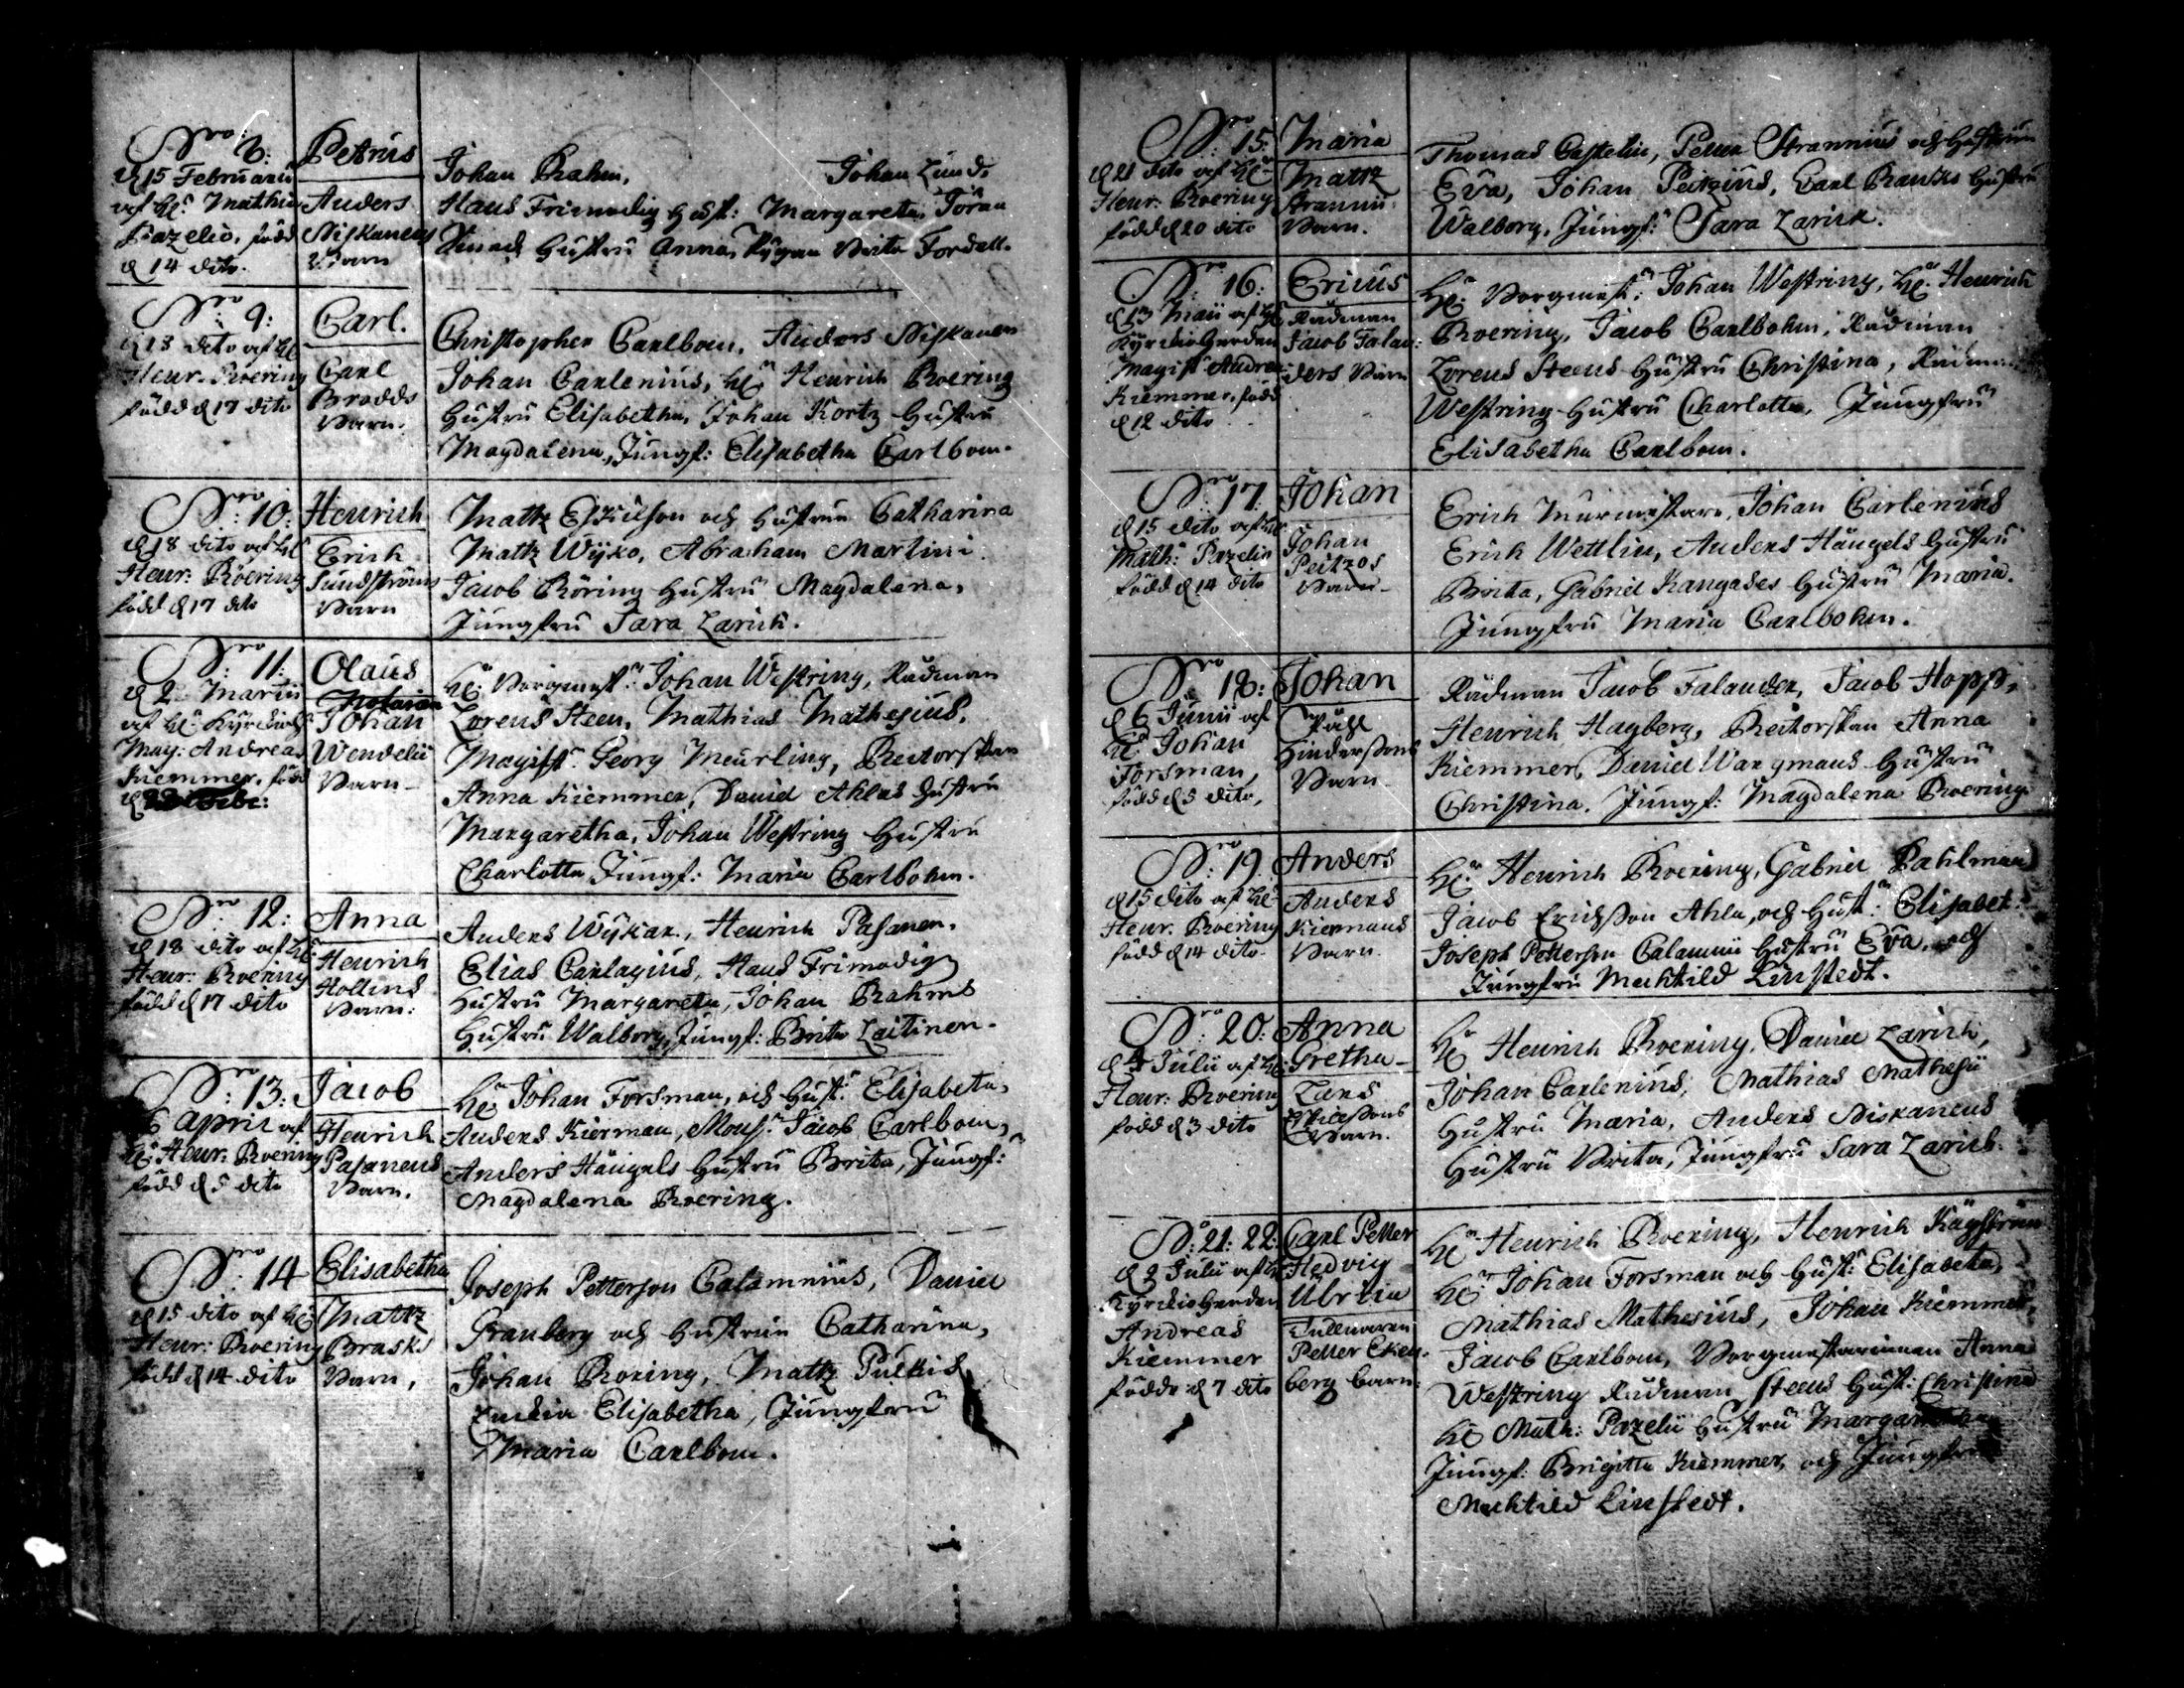 Nro: 8:
d 15 Februarii
af H: Mathia
Pazelio, född
d 14 dito.
Petrus
Anders
Niskanens
Barn
Johan Brahm, Johan Lund,
Hans Frimodig Hust: Margareta, Jöran
Hustru Anna, Brita Fordell.
Nro 9:
d 18 dito af H:
Henr. Roering
född d 17 dito
Carl.
Carl
Brodds
Barn.
Christopher Carlbom, Anders Niskanen
Johan Carlenius, H: Henrich Roering
Hustru Elisabetha, Johan Kortz Hustru
Magdalena, Jungf: Elisabetha Carlbom.
Nro: 10:
d 18 dito af H:
Henr: Röering
född d 17 dito
Henrich
Erich
Sundströms
Barn
Mattz Eskilson och Hustrun Catharina
Mattz Wÿko, Abraham Martini
Jacob Röring Hustru Magdalena,
Jungfru Sara Larich.
Nro: 11:
d 2 Martii
af H: Kyrckioh:
Mag: Andreas
Kiemmer, född
d
Olaus
Notarien
Johan
Wendelii
Barn
H: Borgmest: Johan Westring, Rådman
Lorens Steen, Mathias Mathesius,
Magist: Georg Meurling, Rectorskan
Anna Kiemmer, David Ahlas Hustru
Margaretha, Johan Westring Hustru
Charlotta Jungf: Maria Carlbohm.
Nro 12:
d 18 dito af H:
Henr: Roering
född d 17 dito
Anna
Henrich
Hollins
Barn:
Anders Wÿkar, Henrich Pasanen.
Elias Carlagius, Hans Frimodig
Hustru Margareta, Johan Brahms
Hustru Walborg, Jungf: Brita Laitinen.
Nro: 13:
6 April af
H: Henr: Roering
född d 5 dito
Jacob
Henrich
Pasanens
Barn.
H: Johan Forsman, och Hust: Elisabeta,
Anders Kierman, Mons: Jacob Carlbom,
Anders Hängels Hustru Brita, Jungf:
Magdalena Roering.
Nro: 14
d 15 dito af H:
Henr: Roering
född d 14 dito
Elisabetha
Mattz
Brasks
Barn,
Joseph Petterson Calamnius, Daniel
Granberg och Hustrun Catharina,
Johan Roring, Mattz Pulkis
Enckia Elisabetha, Jungfru
Maria Carlbom.
Nro: 15:
d 21 dito af H:
Henr: Roering
född d 20 dito
Maria
Mattz
Aramii
Barn.
Thomas Castelin, Petter Arannius och Hustrun
Eva, Johan Peitzius, Carl Hustru
Walborg, Jungf: Sara Larich.
Nro 16:
d 13 Maii af H:
Kyrckioherden
Magist: Andrea
Kiemmer, född
d 12 dito
Ericus
Rådman
Jacob Falan:
ders Barn
H: Borgmest: Johan Westring, H: Henrich
Roering, Jacob Carlbohm, Rådman
Lorens Steens Hustru Christina, Rådman
Westring Hustru Charlotta, Jungfru
Elisabetha Carlbom.
Nro 17:
d 15 dito af H:
Math: Pazelio
född d 14 dito
Johan
Johan
Peitzos
Barn
Erich Murmestare, Johan Carlenius
Erich Wettlin, Anders Hängels Hustru
Brita, Gabriel Kangases Hustru Maria.
Jungfru Maria Carlbohm.
Nro 18:
d 6 Junii af
H: Johan
Forsman,
född d 5 dito,
Johan
Påhl
Hinderssons
Barn
Rådman Jacob Falander, Jacob Hopp,
Henrich Hagberg, Rectorskan Anna
Kiemmer, Daniel Wargmans Hustru
Christina. Jungf: Magdalena Roering.
Nro: 19.
d 15 dito af H:
Henr. Roering
född d 14 dito.
Anders
Anders
Kiermans
Barn.
H: Henrich Roering, Gabriel Pahlman
Jacob Erichsson Ahla, och Hust: Elisabet.
Joseph Petterson Calamnii Hustru Eva, och
Jungfru Mechtild Linstedt.
Nro 20:
d 4 Julii af H:
Henr: Roering
född d 3 dito
Anna
Gretha
Lars
Eskilssons
Barn.
H: Henrich Roering, Daniel Larich,
Johan Carlenius, Mathias Mathesii
Hustru Maria, Anders Niskanens
Hustru Brita, Jungfru Sara Larich.
No: 21: 22:
d 9 Julii af H:
Kyrckioherden
Andreas
Kiemmer
födde d 7 dito
Carl Petter
Hedvig
Ulrica
Tullnaren
Petter Eken:
berg barn:
H: Henrich Roering, Henrich Kägström
H: Johan Forsman och Hust: Elisabeta,
Mathias Mathesius, Johan Kiemmer,
Jacob Carlbom, Borgmestarinnan Anna
Westring Rådman Steens Hust: Christina
H: Math: Pazelii Hustru Margaretha
Jungf: Brigitta Kiemmer, och Jungfru
Mechtild Linstedt.